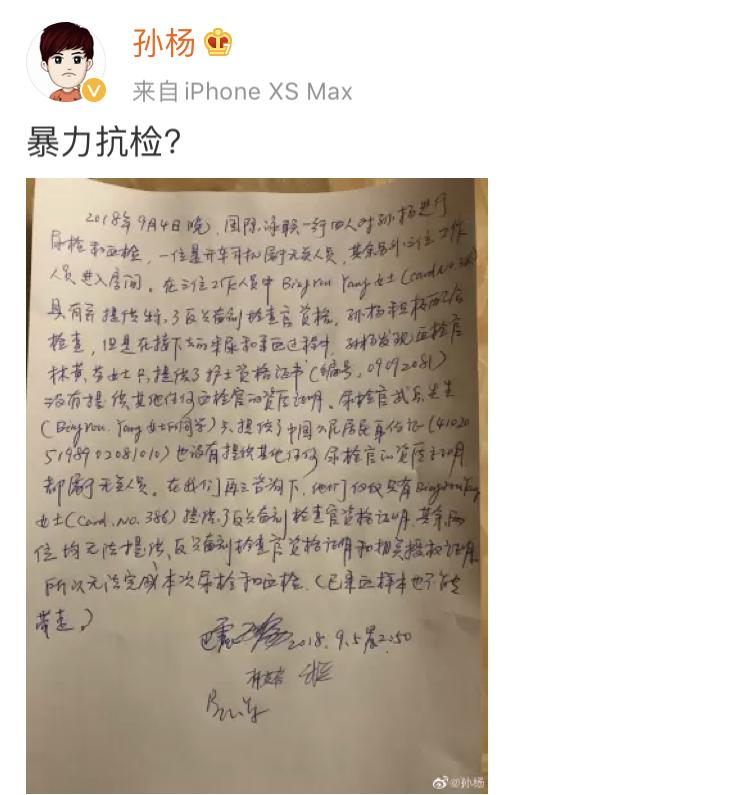 孙杨
来自 iPhone XS Max
暴力抗检?
2018年9月4日晚,国际泳联一行四人对孙杨进行
尿检和血检,一位是开车司机属于无关人员,其余另外三位工作
人员进入房间。在三位工作人员中Bingrou Yang女士(card No.386)
具有并提供出示了反兴奋剂检查官资格。孙杨积极配合
检查,但是在接下去的采尿和采血过程中,孙杨发现血检官
林黄 女士只提供了护士资格证书(编号:09092081)
没有提供其他任何血检官的资质证明。尿检官 先生
(Bingrou.Yang女士的同学)只提供了中国公民居民身份证(41020
5198902081010)也没有提供其他任何尿检官的资质证明
都属于无关人员。在我们再三咨询下,他们仅仅只有Bingrou Yang
女士(Card.No.386)提供了反兴奋剂检查官资格证明,其余两
位均无法提供反兴奋剂检查官资格证明和相关授权证明,
所以无法完成本次尿检和血检.(已采血样本也不能
带走。)
2018.9.5晨2:50
@孙杨